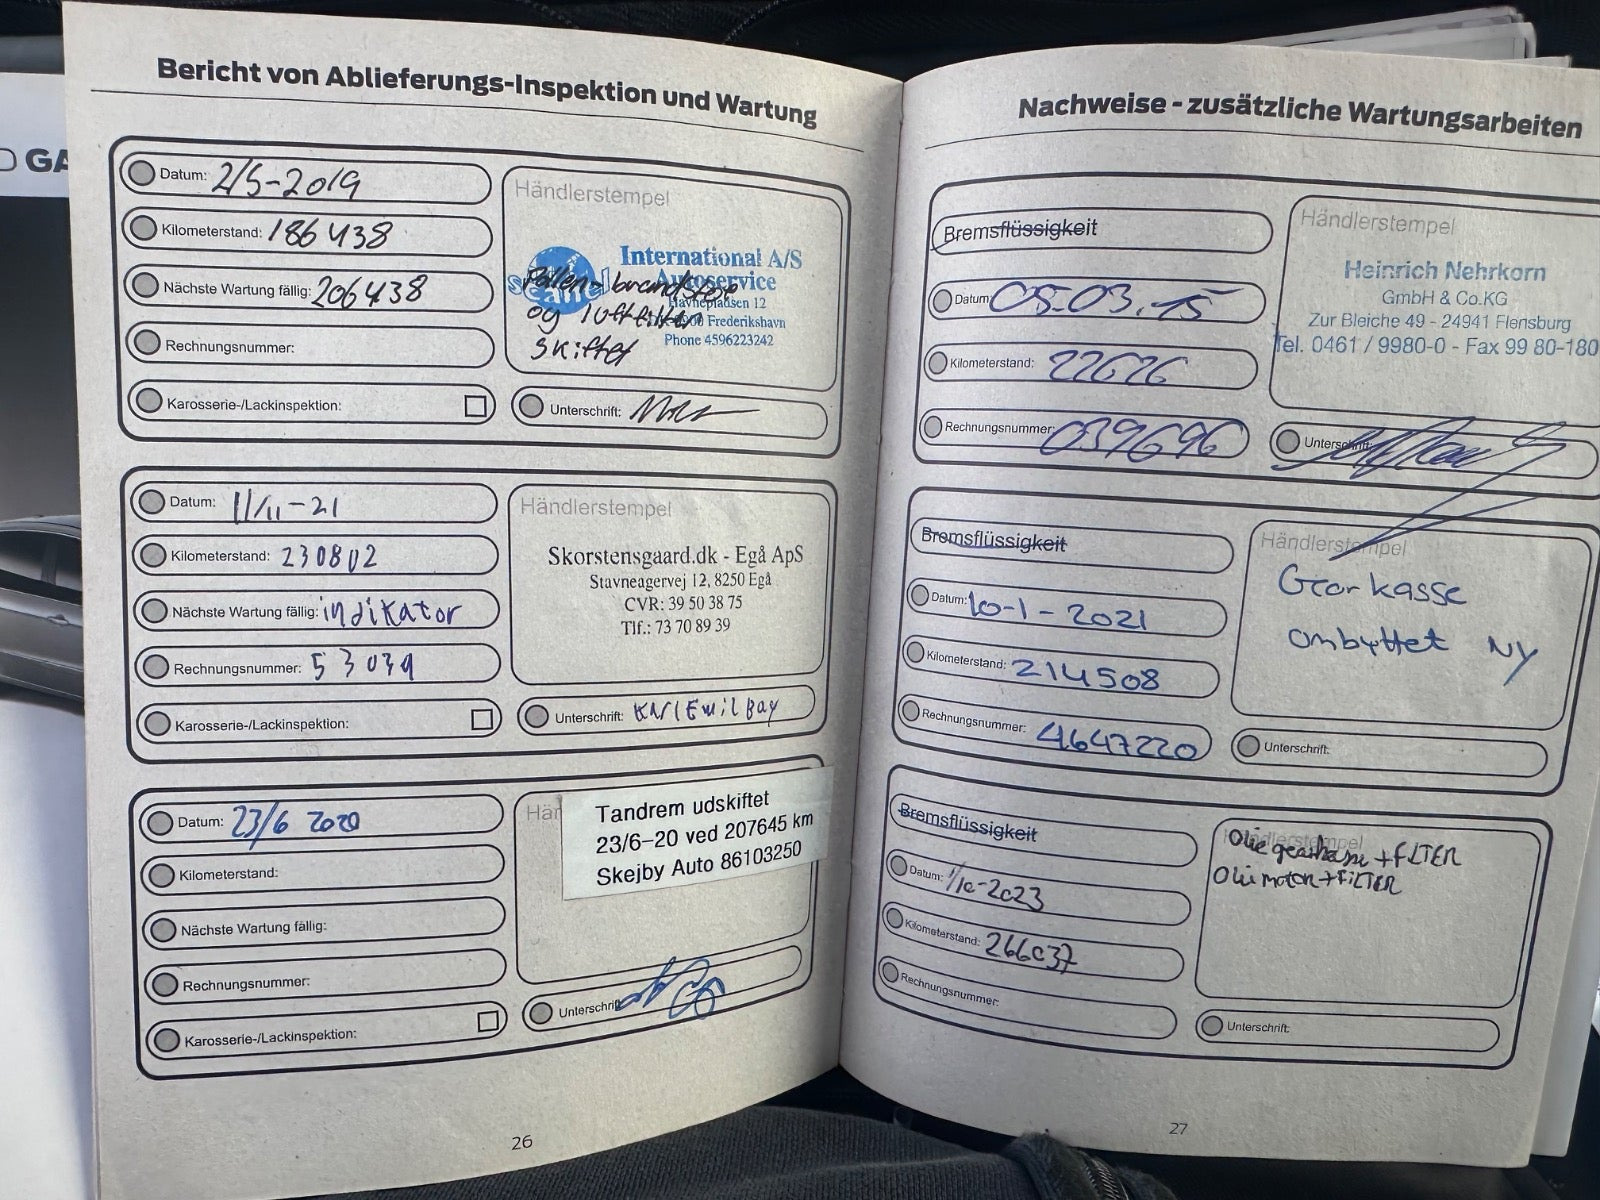 D GA
Bericht von Ablieferungs-Inspektion und Wartung
Datum: 2/5-2019
Kilometerstand: 186438
Nächste Wartung fällig: 206438
Rechnungsnummer:
Karosserie-/Lackinspektion:
Händlerstempel
International A/S
Autoservice
Havnepladsen 12
9900 Frederikshavn
Phone 4596223242
Pollen- brændstof
og luftfilter
skiftet
Unterschrift:
Datum: 11/11-21
Kilometerstand: 230802
Nächste Wartung fällig: indikator
Rechnungsnummer: 53039
Karosserie-/Lackinspektion:
Händlerstempel
Skorstensgaard.dk - Egå ApS
Stavneagervej 12, 8250 Egå
CVR: 39 50 38 75
Tlf.: 73 70 89 39
Unterschrift: KNI Emil Bay
Datum: 23/6 2020
Kilometerstand:
Nächste Wartung fällig:
Rechnungsnummer:
Karosserie-/Lackinspektion:
Hän
Tandrem udskiftet
23/6-20 ved 207645 km
Skejby Auto 86103250
Unterschrift
26
Nachweise - zusätzliche Wartungsarbeiten
Bremsflüssigkeit
Datum 05.03.15
Kilometerstand: 22626
Rechnungsnummer: 039696
Händlerstempel
Heinrich Nehrkorn
GmbH & Co.KG
Zur Bleiche 49 - 24941 Flensburg
Tel. 0461 / 9980-0 - Fax 99 80-180
Unterschrift:
Bremsflüssigkeit
Datum: 10-1-2021
Kilometerstand: 214508
Rechnungsnummer: 4647220
Händlerstempel
Gearkasse
ombyttet NY
Unterschrift:
Bremsflüssigkeit
Datum: 1/10-2023
Kilometerstand: 266037
Rechnungsnummer:
Händlerstempel
Olie gearkasse + FILTER
Olie motor + FILTER
Unterschrift:
27